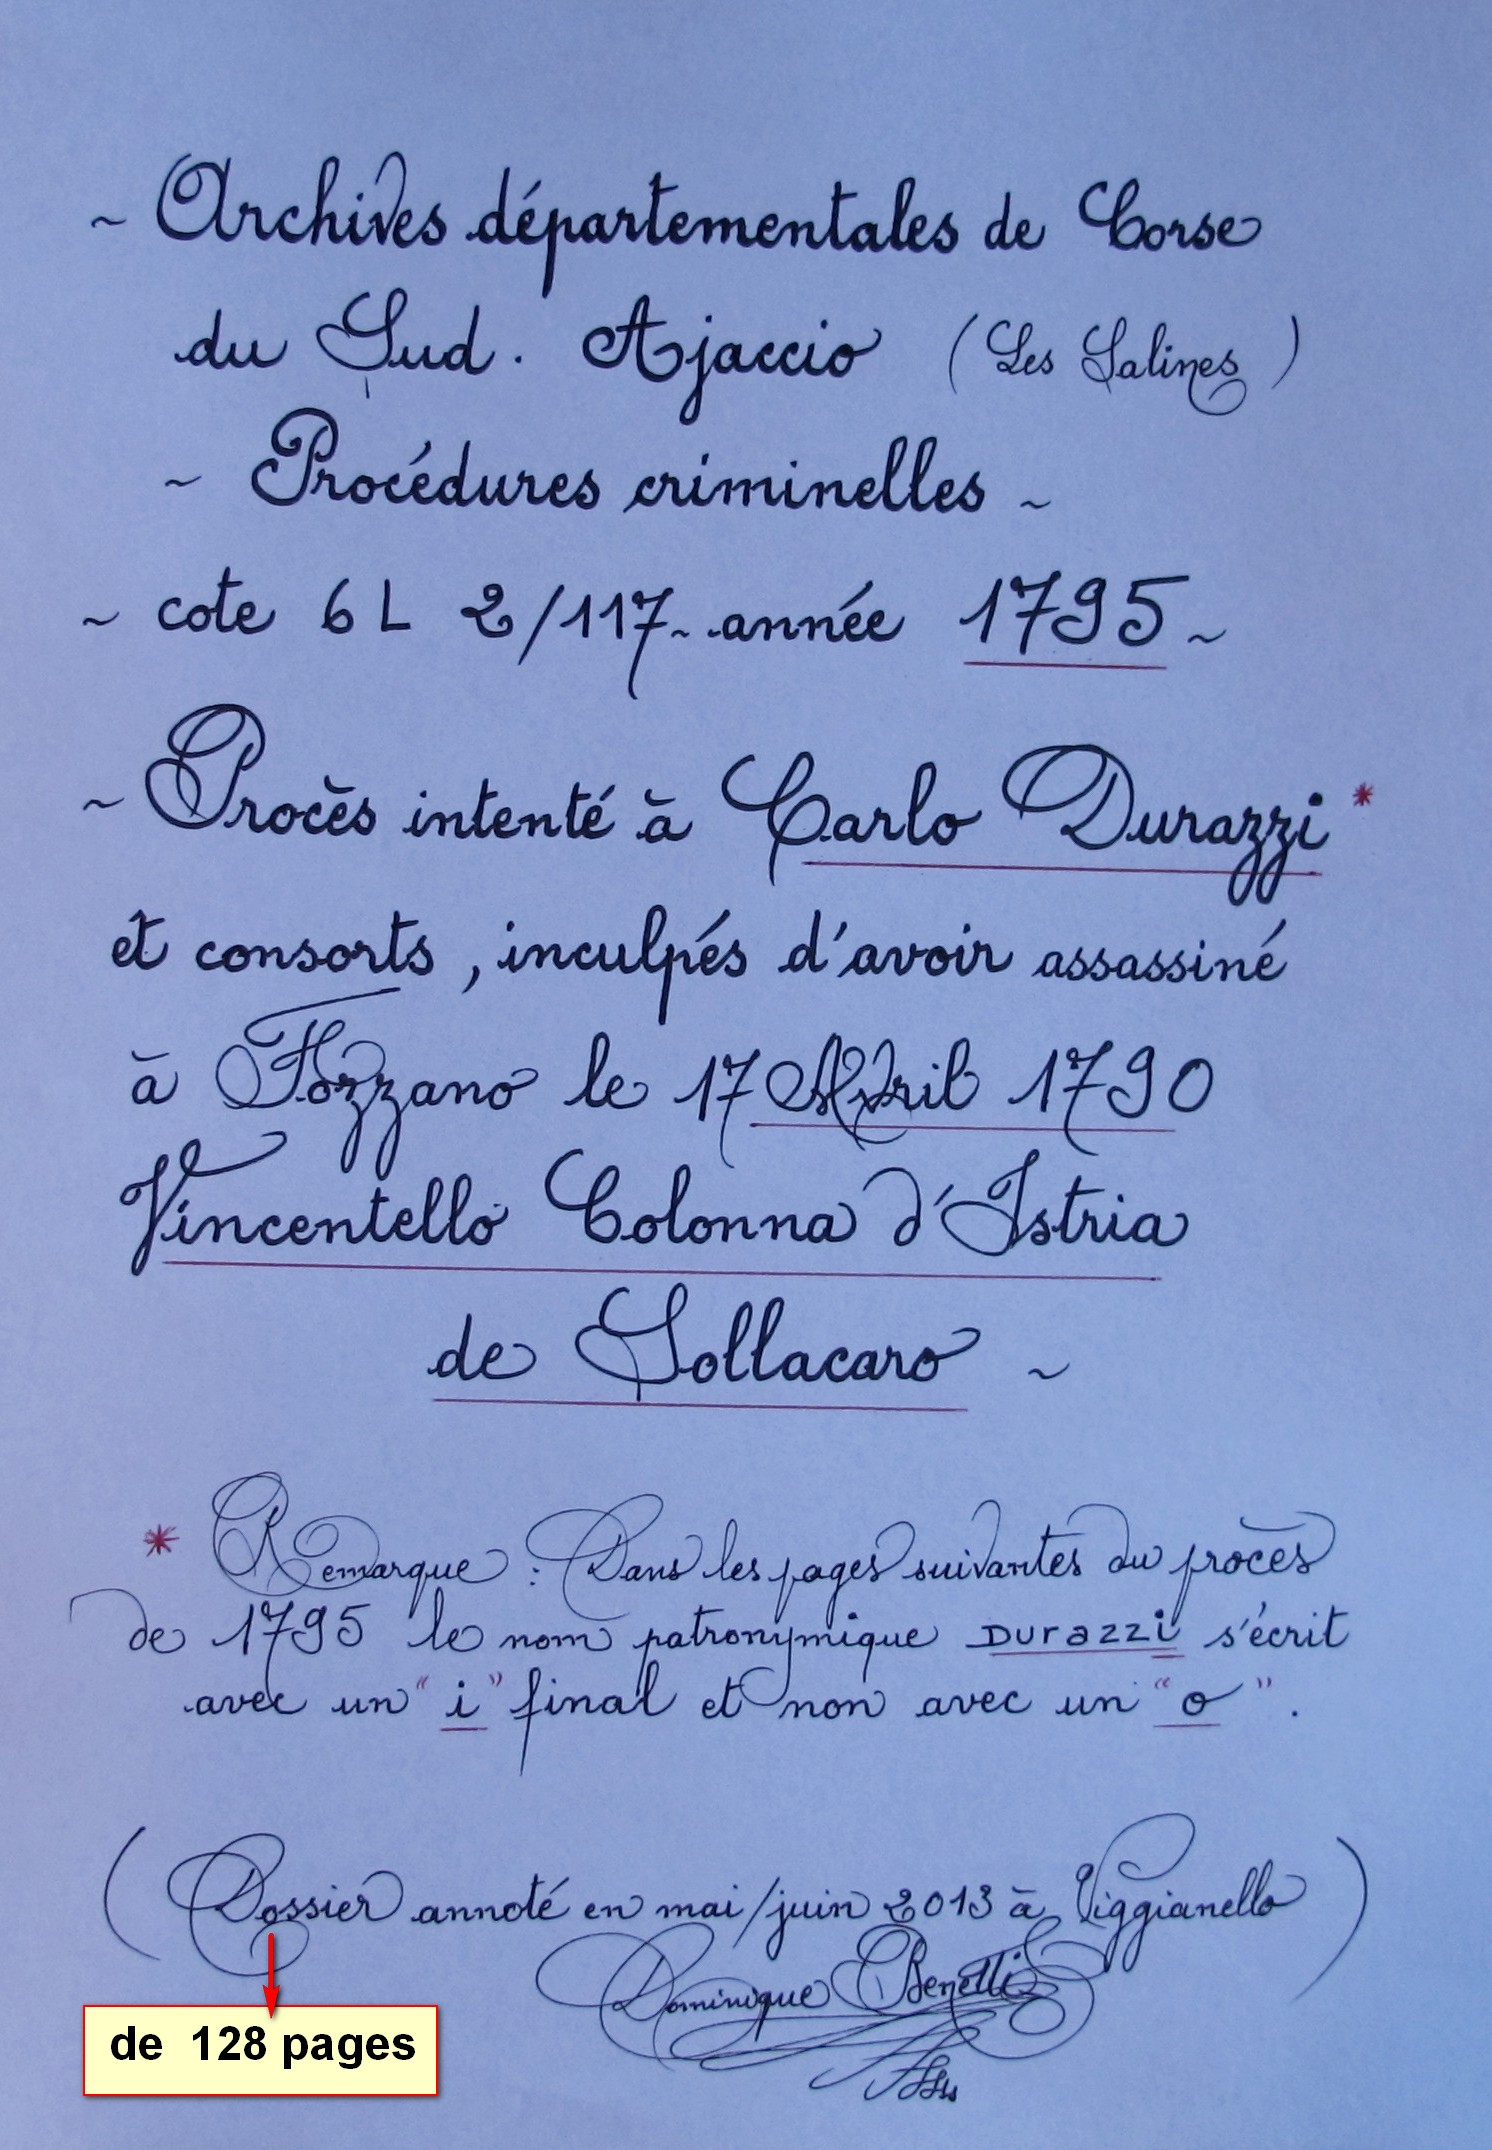 ~ Archives départementales de Corse
du Sud. Ajaccio (Les Salines)
~ Procédures criminelles ~
~ cote 6 L 2/117 ~ année 1795 ~
~ Procès intenté à Carlo Durazzi *
et consorts, inculpés d'avoir assassiné
à Fozzano le 17 Avril 1790
Vincentello Colonna d'Istria
de Sollacaro ~
* Remarque : Dans les pages suivantes du procès
de 1795 le nom patronymique Durazzi s'écrit
avec un "i" final et non avec un "o".
(Dossier annoté en mai/juin 2013 à Viggianello)
Dominique Benetti
de 128 pages